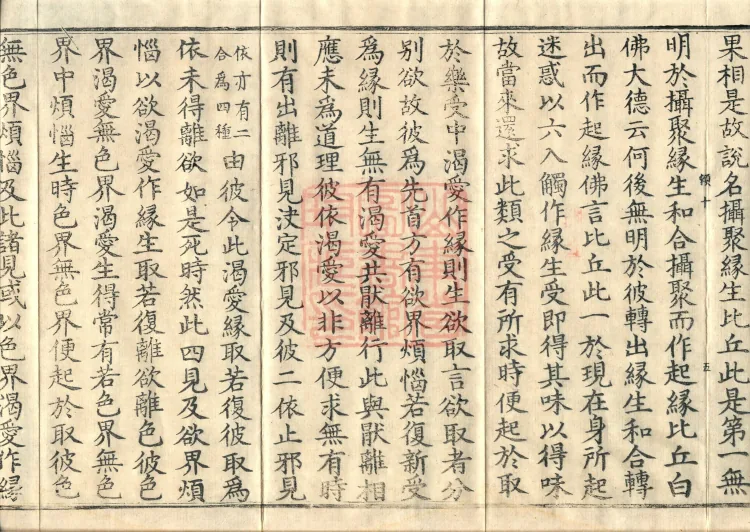 果相是故說名攝聚緣生比丘此是第一無
明於攝聚緣生和合攝聚而作起緣比丘白
佛大德云何後無明於彼轉出緣生和合轉
出而作起緣佛言比丘此一於現在身所起
迷惑以六入觸作緣生受即得其味以得味
故當來還求此類之受有所求時便起於取
於樂受中渴愛作緣則生欲取言欲取者分
別欲故彼為先首方有欲界煩惱若復新受
為緣則生無有渴愛共猒離行此與猒離相
應未為道理彼依渴愛以非方便求無有時
則有出離邪見決定邪見及彼二依止邪見
依亦有二
合為四種
由彼令此渴愛緣取若復彼取為
依未得離欲如是死時然此四見及欲界煩
惱以欲渴愛作緣生取若復離欲離色彼色
界渴愛無色界渴愛生得常有若色界無色
界中煩惱生時色界無色界便起於取彼色
無色界煩惱及此諸見或以色界渴愛作緣